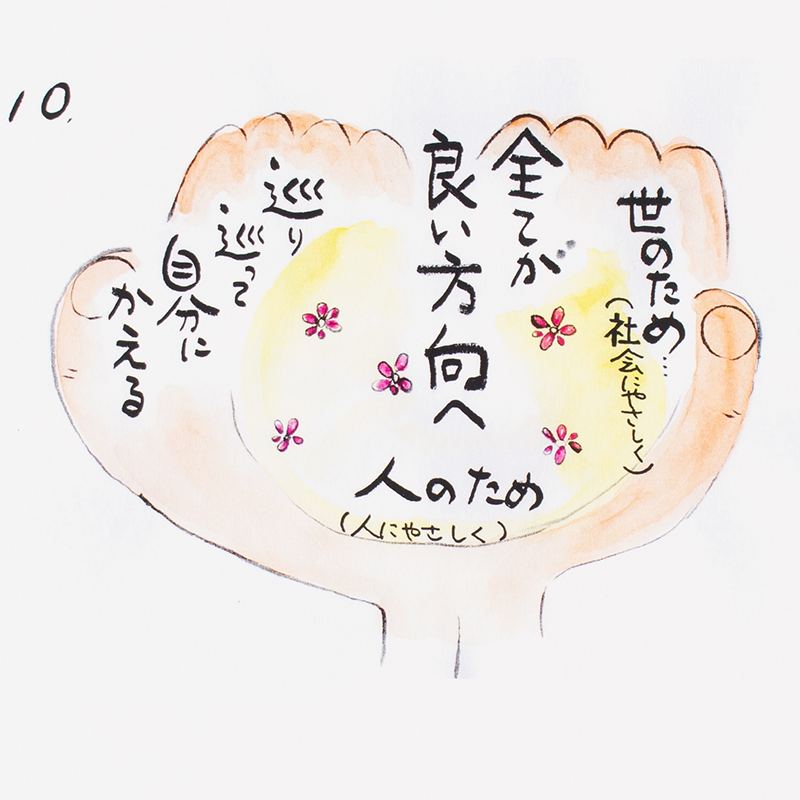 10.
世のため…
(社会にやさしく)
全てが
良い方向へ
人のため
(人にやさしく)
巡り
巡って
自分に
かえる